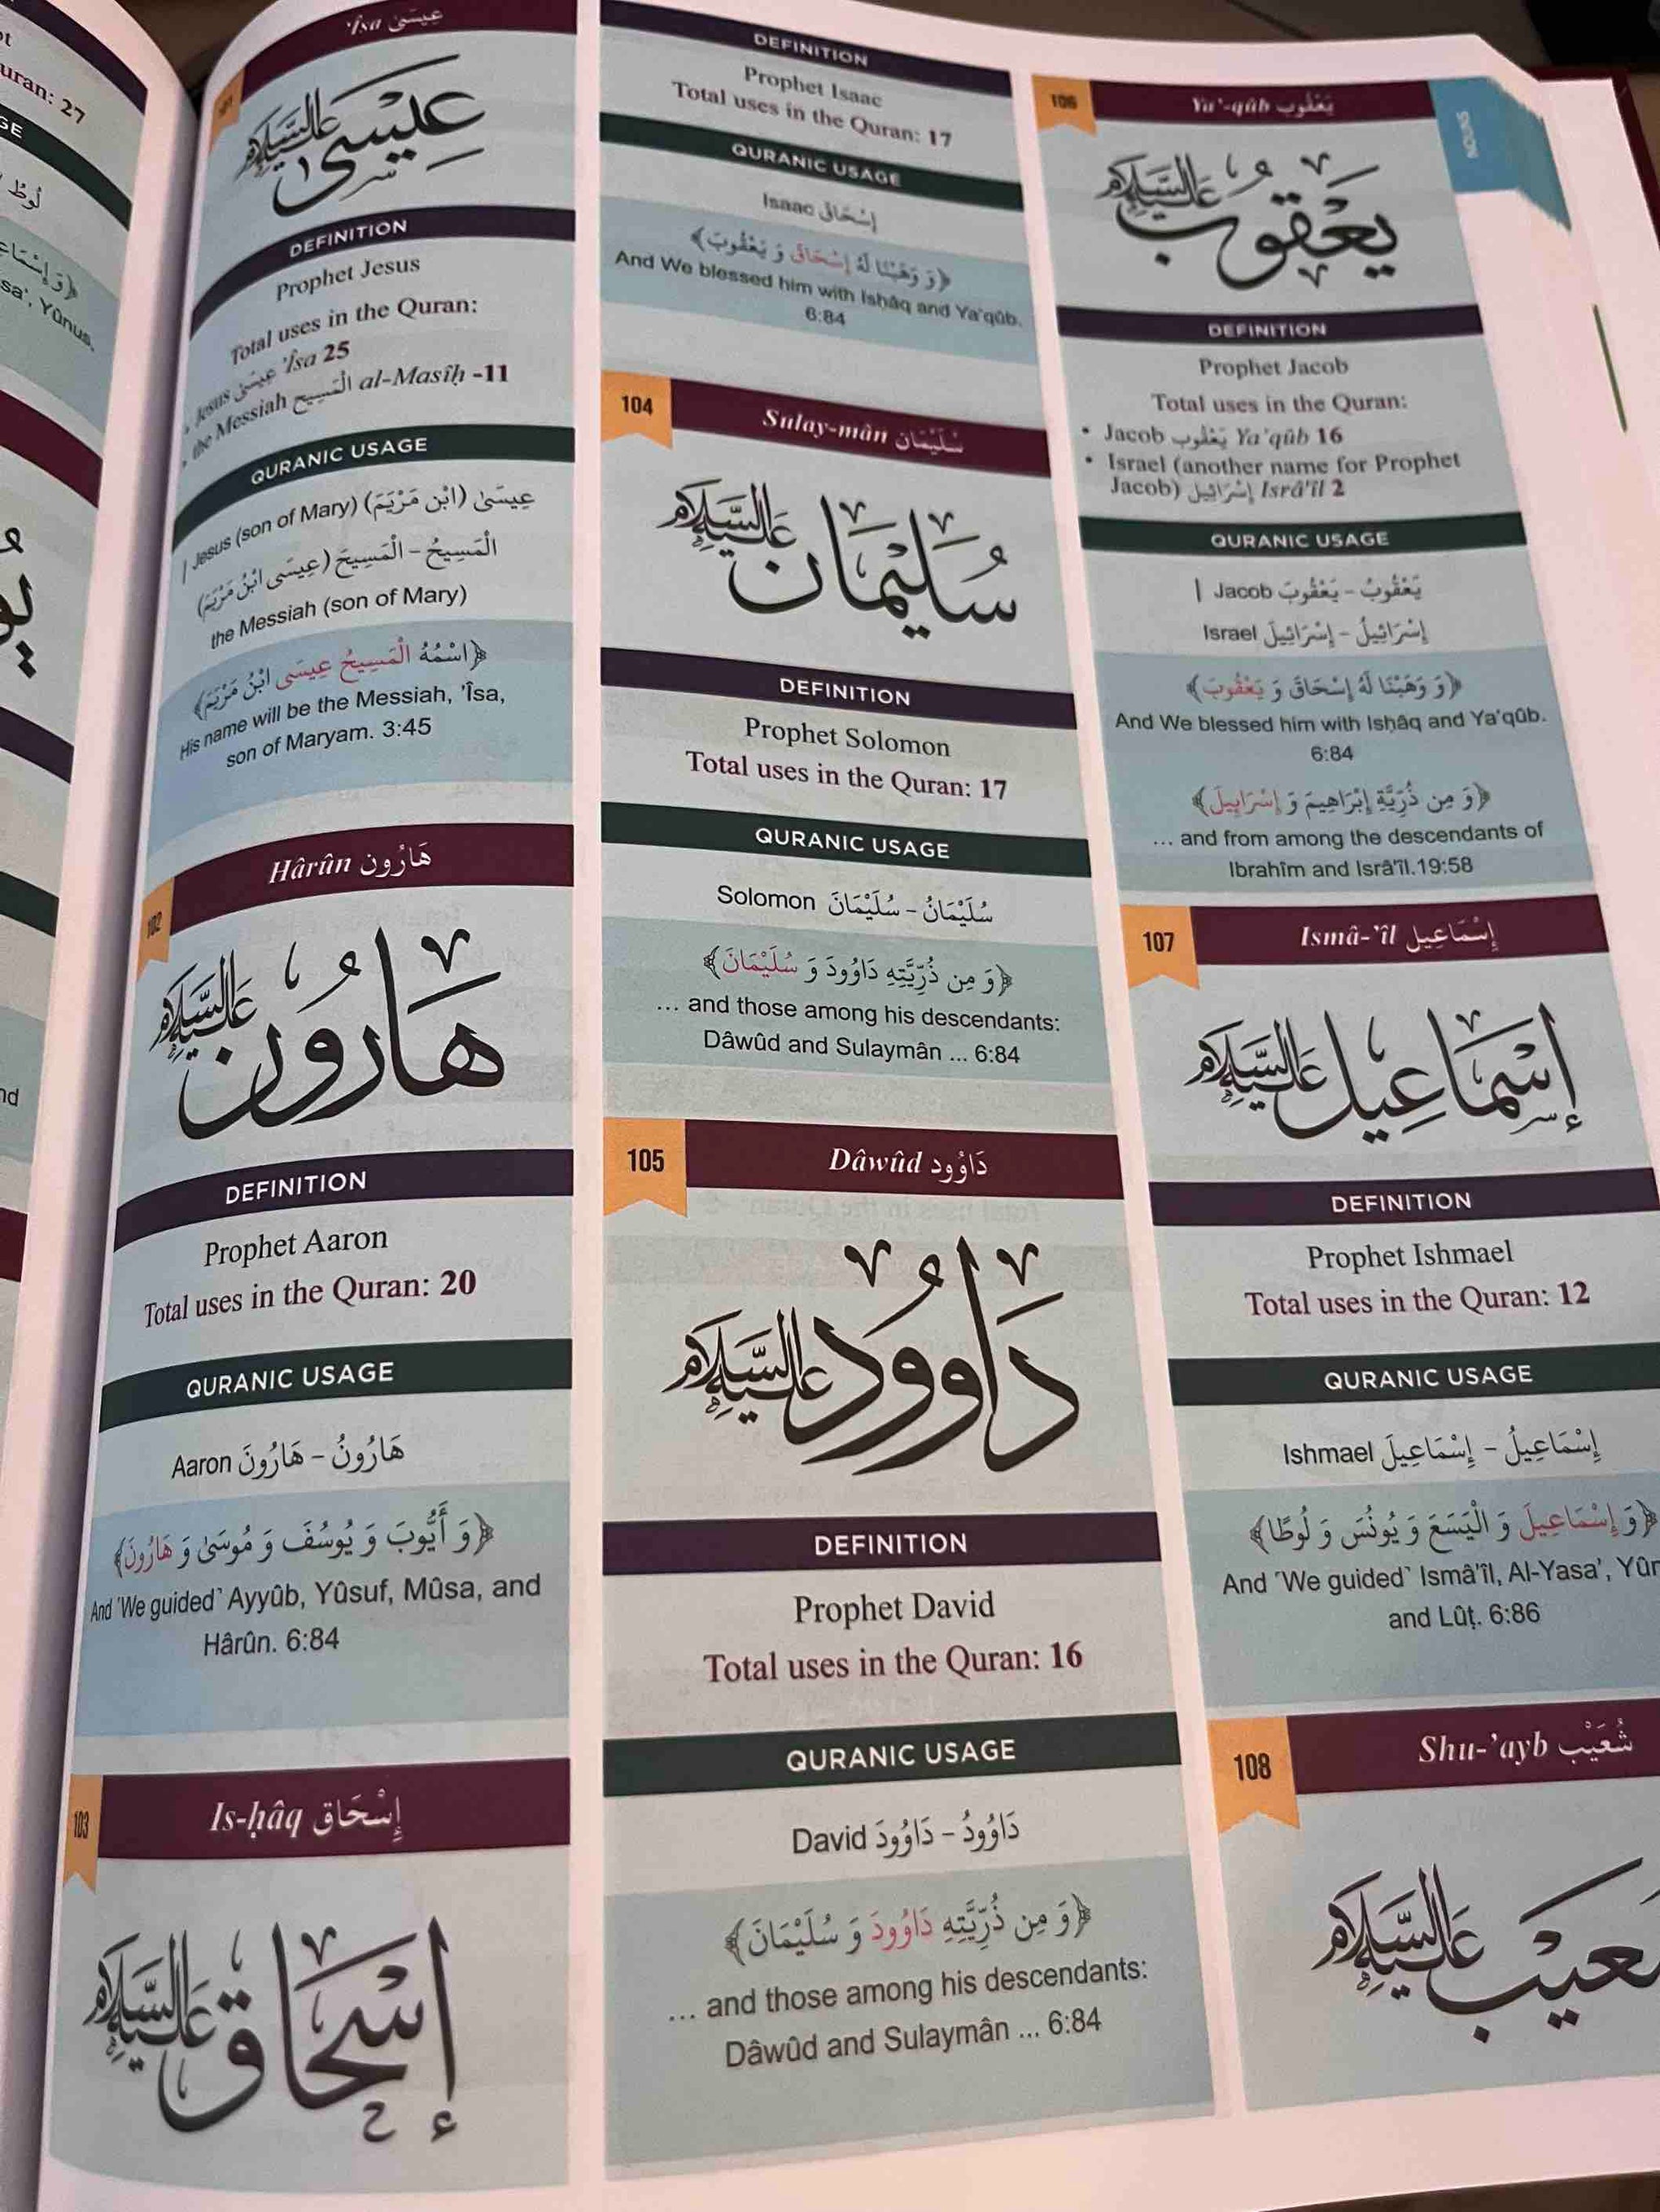 uran: 27
لُوطُ
sa', Yûnus,
nd
'Îsa عِيسَىٰ
101
عِيسَىٰ عَلَيْهِ السَّلَام
DEFINITION
Prophet Jesus
Total uses in the Quran:
• Jesus عِيسَىٰ 'Îsa 25
• the Messiah الْمَسِيح al-Masîḥ -11
QURANIC USAGE
| Jesus (son of Mary) عِيسَىٰ (ابْن مَرْيَمَ)
الْمَسِيحُ – الْمَسِيحَ (عِيسَى ابْنُ مَرْيَمَ)
the Messiah (son of Mary)
﴿اسْمُهُ الْمَسِيحُ عِيسَى ابْنُ مَرْيَمَ﴾
His name will be the Messiah, 'Îsa,
son of Maryam. 3:45
102
Hârûn هَارُون
هَارُون عَلَيْهِ السَّلَام
DEFINITION
Prophet Aaron
Total uses in the Quran: 20
QURANIC USAGE
Aaron هَارُونُ – هَارُونَ
﴿وَ أَيُّوبَ وَ يُوسُفَ وَ مُوسَىٰ وَ هَارُونَ﴾
And ˹We guided˺ Ayyûb, Yûsuf, Mûsa, and
Hârûn. 6:84
103
Is-ḥâq إِسْحَاق
إِسْحَاق عَلَيْهِ السَّلَام
DEFINITION
Prophet Isaac
Total uses in the Quran: 17
QURANIC USAGE
Isaac إِسْحَاقَ
﴿وَ وَهَبْنَا لَهُ إِسْحَاقَ وَ يَعْقُوبَ﴾
And We blessed him with Isḥâq and Ya'qûb.
6:84
104
Sulay-mân سُلَيْمَان
سُلَيْمَان عَلَيْهِ السَّلَام
DEFINITION
Prophet Solomon
Total uses in the Quran: 17
QURANIC USAGE
Solomon سُلَيْمَانُ – سُلَيْمَانَ
﴿وَ مِن ذُرِّيَّتِهِ دَاوُودَ وَ سُلَيْمَانَ﴾
... and those among his descendants:
Dâwûd and Sulaymân ... 6:84
105
Dâwûd دَاوُود
دَاوُود عَلَيْهِ السَّلَام
DEFINITION
Prophet David
Total uses in the Quran: 16
QURANIC USAGE
David دَاوُودُ – دَاوُودَ
﴿وَ مِن ذُرِّيَّتِهِ دَاوُودَ وَ سُلَيْمَانَ﴾
... and those among his descendants:
Dâwûd and Sulaymân ... 6:84
NOUNS
106
Ya'-qûb يَعْقُوب
يَعْقُوب عَلَيْهِ السَّلَام
DEFINITION
Prophet Jacob
Total uses in the Quran:
• Jacob يَعْقُوب Ya'qûb 16
• Israel (another name for Prophet
Jacob) إِسْرَائِيل Isrâ'îl 2
QURANIC USAGE
| Jacob يَعْقُوبُ – يَعْقُوبَ
Israel إِسْرَائِيلُ – إِسْرَائِيلَ
﴿وَ وَهَبْنَا لَهُ إِسْحَاقَ وَ يَعْقُوبَ﴾
And We blessed him with Isḥâq and Ya'qûb.
6:84
﴿وَ مِن ذُرِّيَّةِ إِبْرَاهِيمَ وَ إِسْرَاءِيلَ﴾
... and from among the descendants of
Ibrahîm and Isrâ'îl.19:58
107
Ismâ-'îl إِسْمَاعِيل
إِسْمَاعِيل عَلَيْهِ السَّلَام
DEFINITION
Prophet Ishmael
Total uses in the Quran: 12
QURANIC USAGE
Ishmael إِسْمَاعِيلُ – إِسْمَاعِيلَ
﴿وَ إِسْمَاعِيلَ وَ الْيَسَعَ وَ يُونُسَ وَ لُوطًا﴾
And ˹We guided˺ Ismâ'îl, Al-Yasa', Yûn
and Lûṭ. 6:86
108
Shu-'ayb شُعَيْب
عَيْب عَلَيْهِ السَّلَام